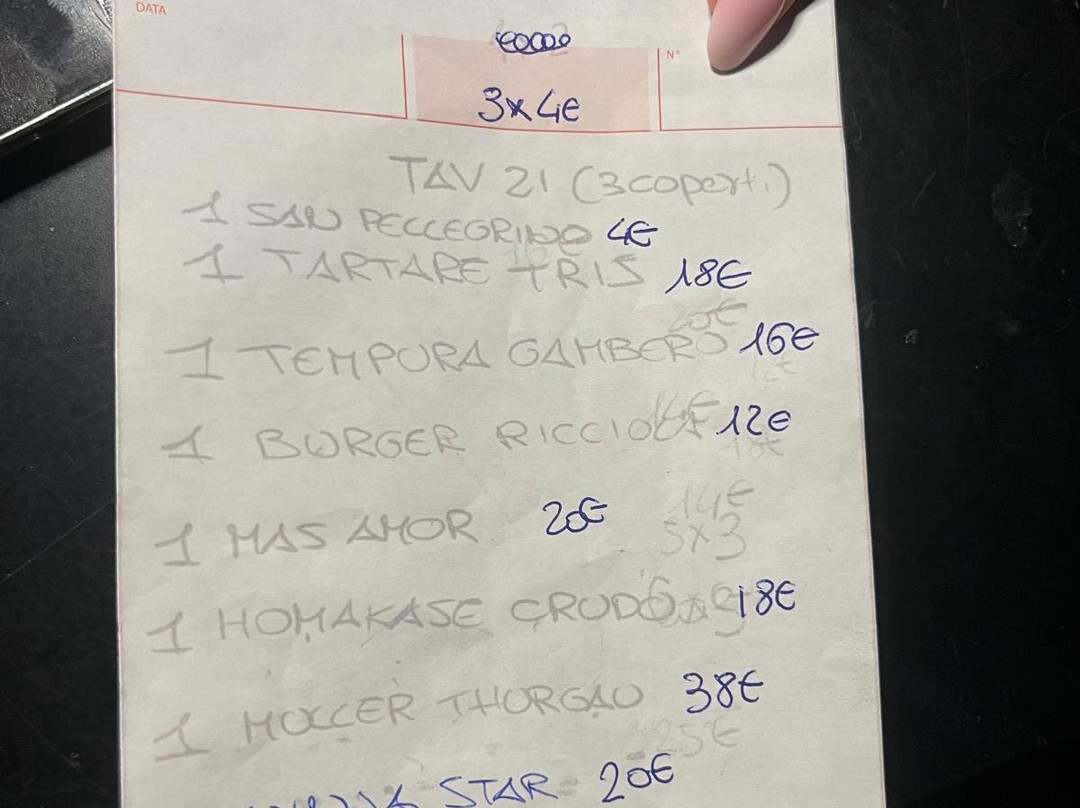 DATA
N°
3x4€
TAV 21 (3 coperti)
1 SAN PECCEGRINO 4€
1 TARTARE TRIS 18€
20€
1 TEMPURA GAMBERO 16€
12€
1 BURGER RICCIOLA 12€
18€
14€
1 MAS AMOR 20€
5x3
1 HOMAKASE CRUDO 18€
1 MULLER THURGAU 38€
25€
STAR 20€